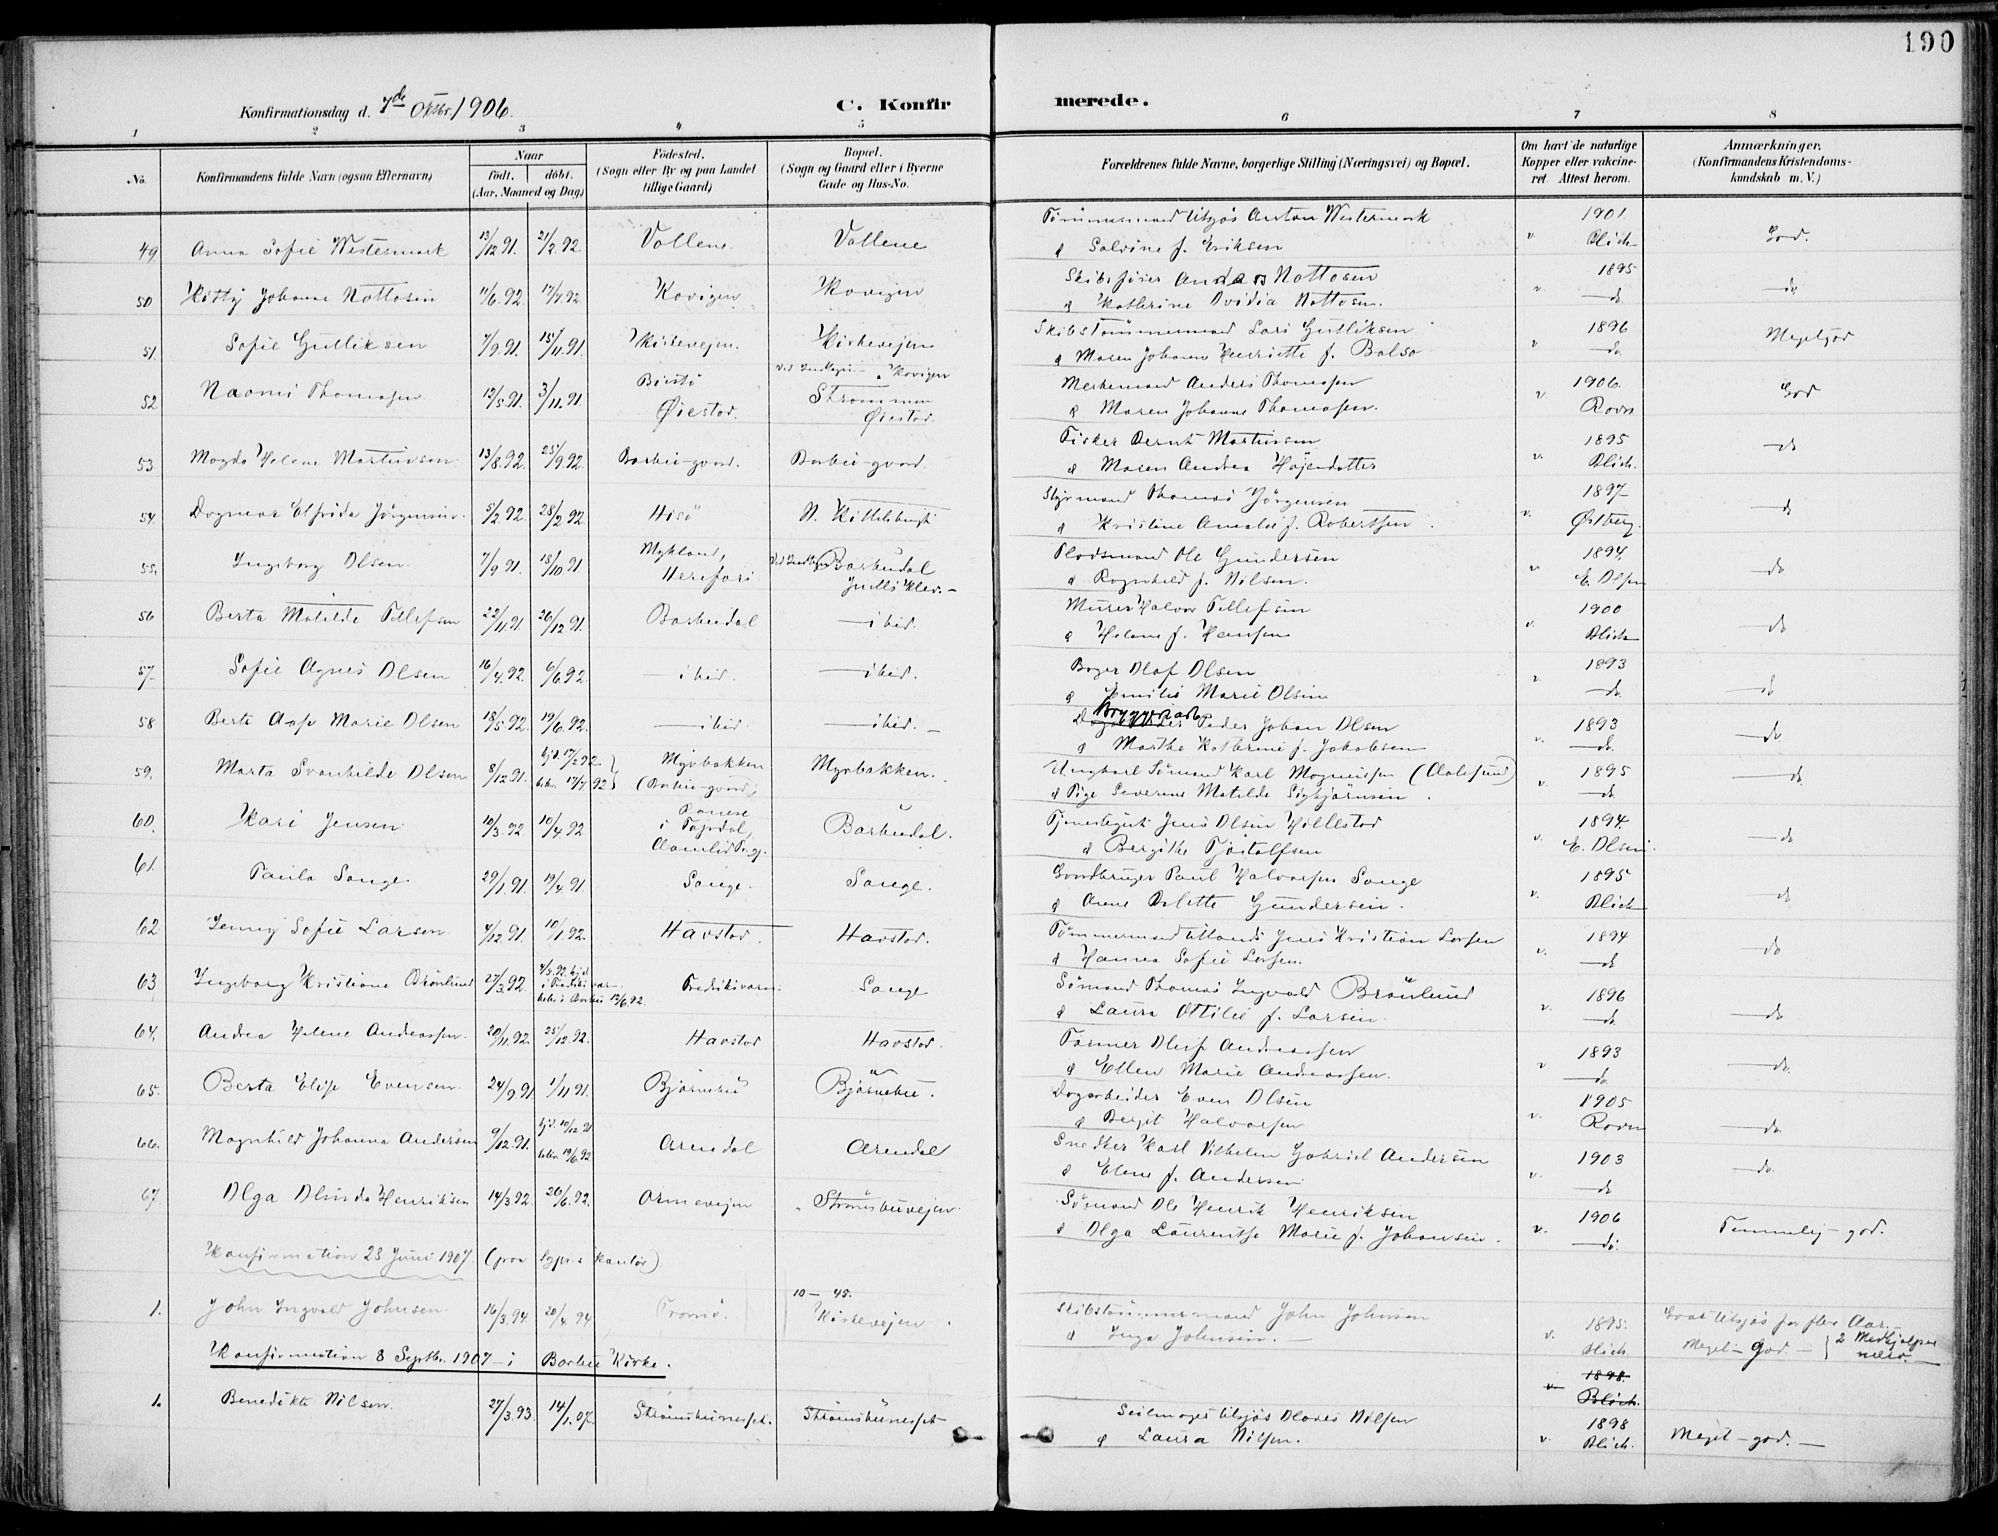 190
Konfirmationsdag d. 7de Oktbr. 1906.
C. Konfirmerede.
1 2 3 4 5 6 7 8
No. Konfirmandens fulde Navn (ogsaa Efternavn) Naar født. døbt. (Aar, Maaned og Dag) Fødested. (Sogn eller By og paa Landet tillige Gaard) Bopæl. (Sogn og Gaard eller i Byerne Gade og Hus-No. Forældrenes fulde Navne, borgerlige Stilling (Næringsvei) og Bopæl. Om havt de naturlige Kopper eller vakcineret. Attest herom. Anmærkninger. (Konfirmandens Kristendomskundskab m. V.)
49 Anna Sofie Westermark 13/12 91. 21/2. 92. Vollene. Vollene Tømmermand tilsjøs Anton Westermark
& Salvine f. Eriksen v. 1901. Blich God.
50 Kitty Johanne Nottosen 11/6. 92. 17/7. 92. Kovigen Kovigen Skibsfører Anders Nottosen
& Kathrine Ovidia Nottosen. v 1895 — do do
51. Sofie Gutliksen 7/9. 91. 15/11. 91. Kirkevejen. Kirkevejen Skibstømmermand Lars Gutliksen
& Maren Johanne Henriette f. Balso v 1896 — do Megetgod
52 Naomi Thomassen 12/5. 91. 3/11. 91. Øiestad. Kovigen Strømmen Øiestad. Anders Thomassen
& Maren Johanne Thomassen. v 1906. Rovn God
53. Magda Helene Martinsen. 13/8. 92. 25/9. 92. Barbu-gaard. Barbu-gaard. Fisker Bernt Martinsen
& Maren Andrea v. 1895 Blich. do
54. Dagmar Elfrida Jørgensen. 5/2. 92. 28/2 92. Hisø N. Kittelsbugt Styrmand Thomas Jørgensen
& Kristine Amalie f. Robertsen. v. 1897 Østberg. do
55. Ingeborg Olsen. 7/9 91. 18/10 91 Mykland, Herefos Barbudal Ole Gundersen
& Ragnhild f. Nilsen. v. 1894. E. Olsen do
56 Berta Matilde Tellefsen 22/11. 91. 26/12 91. Barbudal — ibid. Murer Halvor Tellefsen
& Helene f. Hansen v. 1900 Blich do
57 Sofie Agnes Olsen 16/4. 92. 6/6 92. — ibid. — ibid. Olaf Olsen
& Emilie Marie Olsen v. 1893 — do. do
58 Berte Aase Marie Olsen 18/5. 92. 19/6. 92. — ibid. — ibid. — Peder Johan Olsen
& Marthe Kathrine f. Jakobsen v. 1893 — do. do
59. Marta Svanhilde Olsen 8/12 91. hjd. 17/2 92. bekr. 17/7. 92 Myrbakken (Barbu-gaard) Myrbakken. Ungkarl Sømand Karl Magnussen (Aalesund)
& Pige Severine Matilde Sigbjørnsen. v. 1895 — do. do
60. Kari Jensen 10/3. 92 10/4. 92 i Topdal, Barbudal. Jens Olsen
& Bergithe v. 1894. E. Olsen. do
61. Paula Sange. 29/1. 91. 19/4. 91. Sange. Sange. Gaardbruger Paul Halvorsen Sange
& Anne Gundersen. v. 1895 Blich do
62 Jenny Sofie Larsen 4/12 91. 10/1. 92. Havstad. Havstad. Tømmermand Jens Kristian Larsen
& Hanna Sofie Larsen. v. 1894 — do do
63 Ingeborg Kristiane Brønlund 27/3. 92 4/5. 92. hjd. i Fredriksvar bekr. i Barbu 12/6. 92. Fredriksværn. Sange Sømand Thomas Ingvald Brønlund
& Laura Ottilie f. Larsen. v. 1896 — do do
64. Andrea Helene Andreassen. 20/11. 92. 25/12 92. Havstad Havstad. Oluf Andreassen
& Ellen Marie Andreassen. v 1893 — do. do.
65. Berta Elise Evensen. 24/9 91 1/11 91. Bjørnebu Bjørnebu. Dagarbeider Even Olsen
& Bergit Halvorsen v. 1905 Rovn do
66. Magnhild Johanna Andersen 9/12 91. hjd. 10/12 91 bekr. 19/6. 92 Arendal Arendal Snedker Karl Vilhelm Gabriel Andersen
& Elene f. Andersen v. 1903 — do do.
67. Olga Olinda Henriksen 14/3. 92. 26/6. 92. Ormevejen Strømsbuvejen. Sømand Ole Henrik Henriksen
& Olga Laurentse Marie f. Johansen. v. 1906 — do. Temmelig — god.
Konfirmation 23 Juni 1907 (paa Sgpr.s kontor)
1. John Ingvald Johnsen. 16/3. 94. 20/4. 94 Tromø. 10 — 45. Kirkevejen. Skibstømmermand John Johnsen
& Inga Johnsen. — v. 1895. Blich Meget — god — 2 Medhjelpere
Konfirmation 8 Septbr. 1907 — i Barbu Kirke.
v. 1898. Blich.
1. Benedikte Nilsen. 27/3. 93. 14/1. 07. Strømsbunesset. Strømsbunesset Seilmager tilsjøs Nilsen
& Laura Nilsen. v. 1898 Blich. Meget — god. —